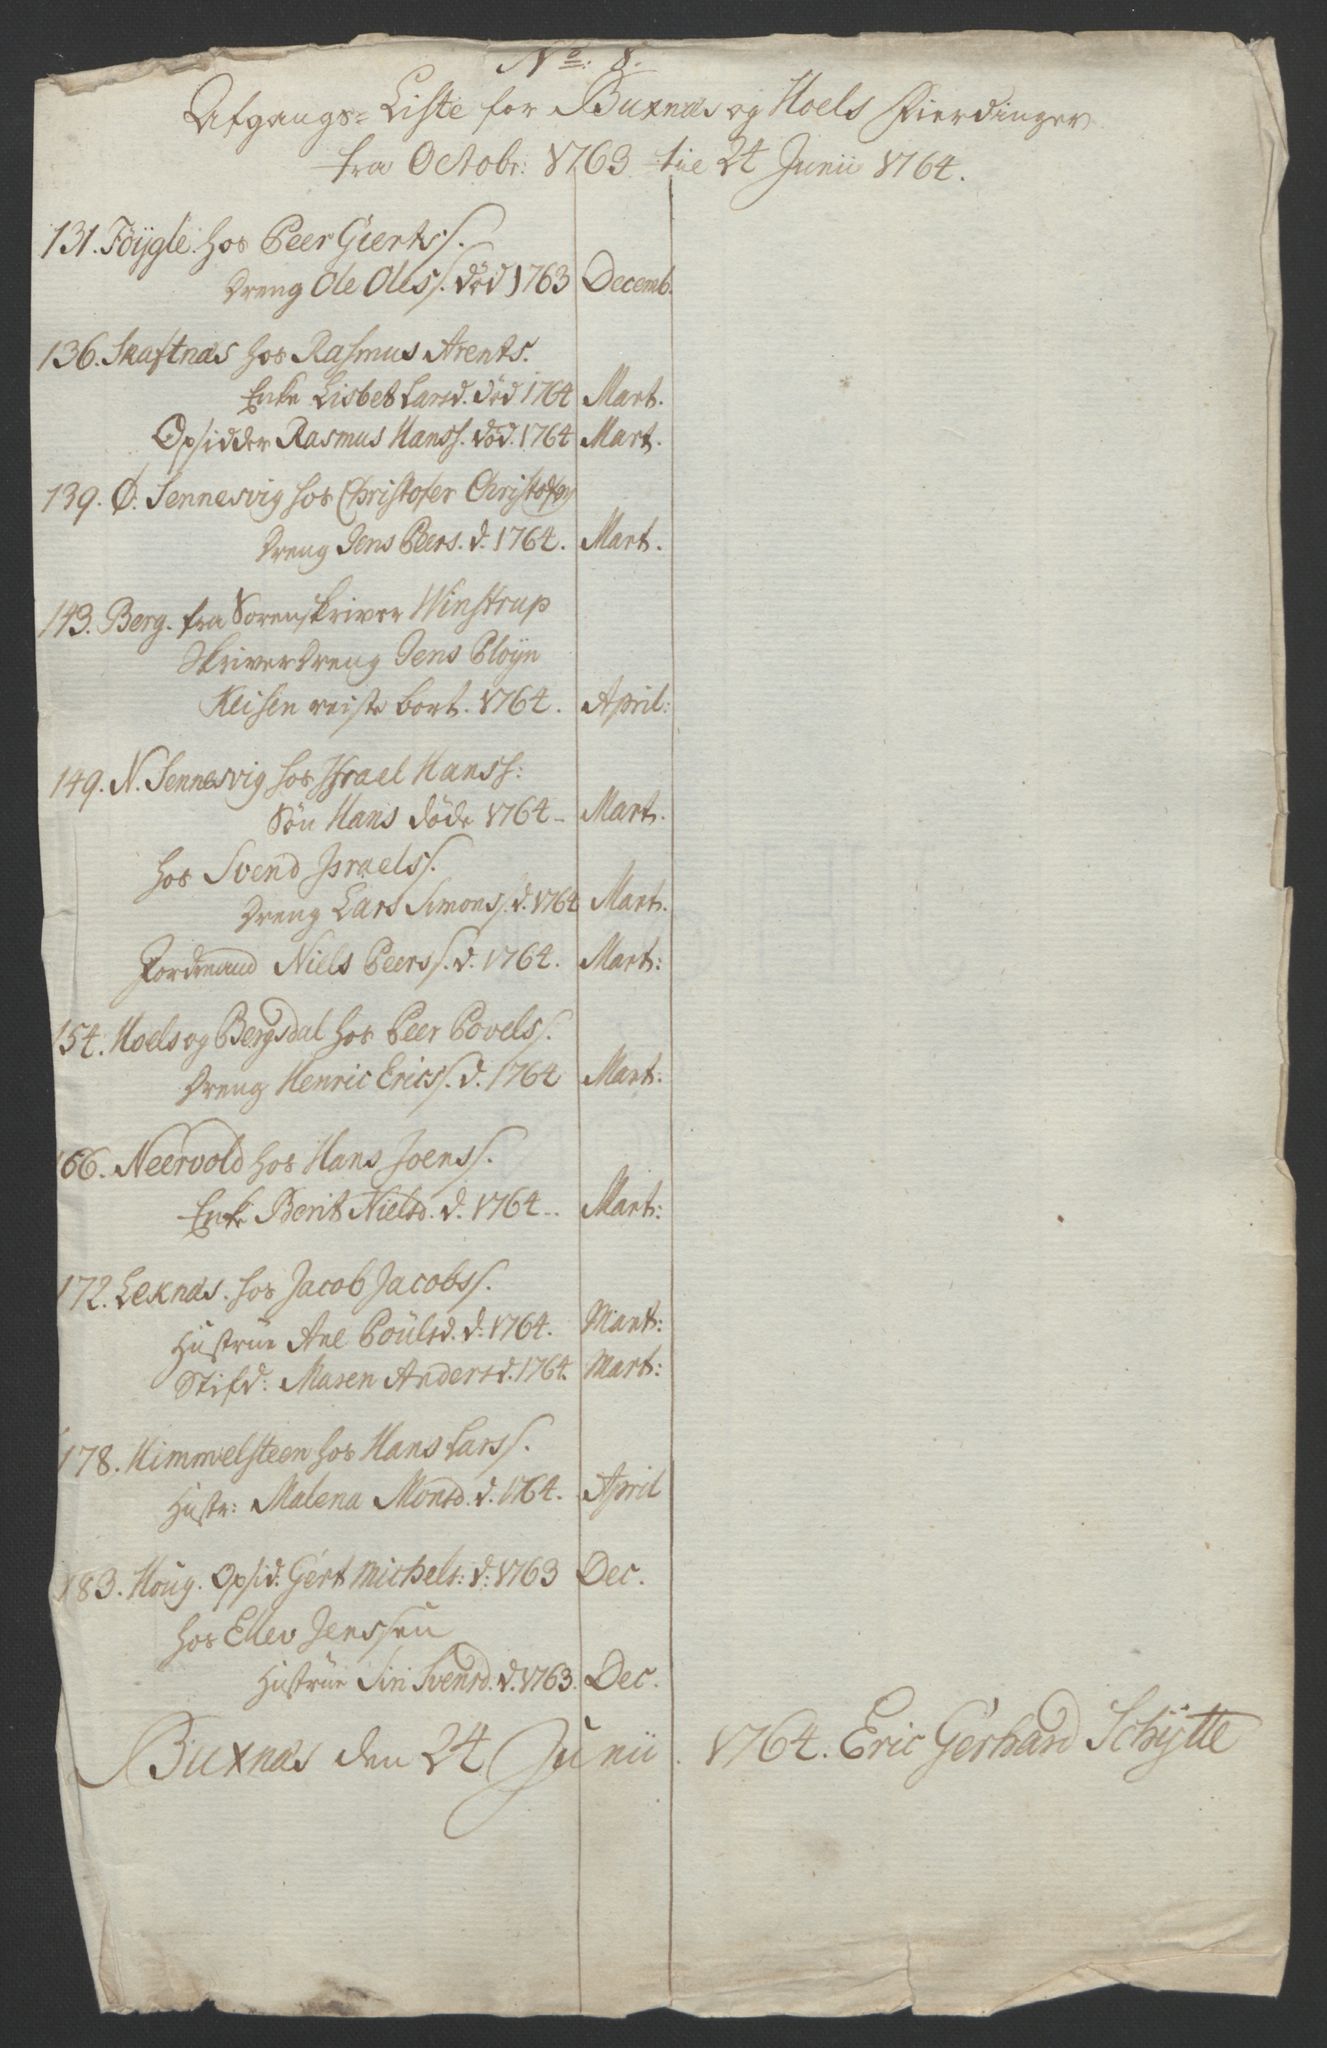 No: 8.
Afgangs= Liste for Buxnæs og Hoels Fierdinger
fra Octobr: 1763 til 24 Junii 1764.
131. Föÿgle hos Peer Gierts/.
Dreng Ole Oles/. død 1763 Decemb.
136. Skaftnæs hos Rasmus Arents.
Enke Lisbet Larsd. død 1764 Mart.
Opsidder Rasmus Hans/. død. 1764 Mart.
139. Ø. Sennesvig hos Christofer Christofer
Dreng Jens Peers. d. 1764. Mart.
143. Berg. fra Sorenskriver Winstrup
Skriverdreng Jens Ployn
Keisen reiste bort. 1764. April:
149. N. Sennesvig hos Israel Hanss:
Søn Hans døde 1764- Mart.
hos Svend Israels/.
Dreng Lars Simons/. d. 1764 Mart.
Fordmand Niels Peers/. d. 1764. Mart:
154. Hoels og Bergsdal hos Peer Povels/.
Dreng Henric Erics/. d. 1764 Mart:
166. Neervold hos Hans Joens/.
Enke Berit Nielsd. d. 1764.. Mart:
172. Leknæs. hos Jacob Jacobs/.
Hustrue Ane Poülsd. d. 1764. Mart:
Stifd: Maren Andersd. 1764. Mart:
178. Himmelsteen hos Hans Lars/.
Hustr: Malena Monsd. d. 1764. April
183. Houg. Opsid. Gert Michels: d: 1763 Dec.
hos Ellev Jenssen
Hustrue Siri Svensd. d. 1763. Dec.
Buxnæs den 24 Junii 1764. Eric Gerhard Schÿtte